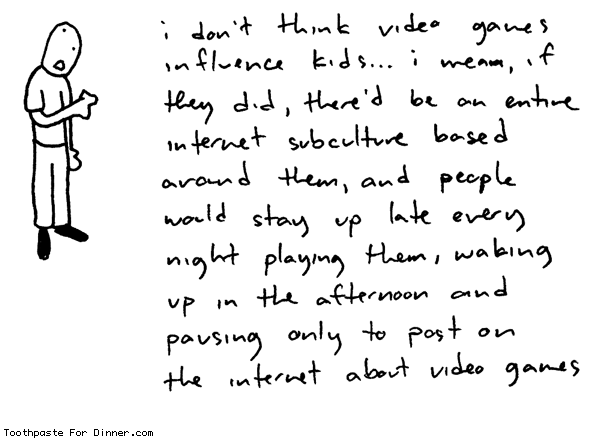 i don't think video games
influence kids... i mean, if
they did, there'd be an entire
internet subculture based
around them, and people
would stay up late every
night playing them, waking
up in the afternoon and
pausing only to post on
the internet about video games
Toothpaste For Dinner.com